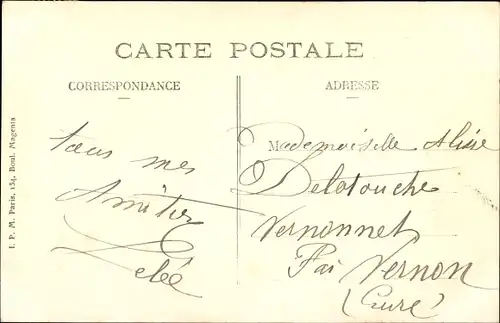 CARTE POSTALE
CORRESPONDANCE
ADRESSE
I. P. M. Paris, 134, Boul. Magenta
tous mes
Amitiés
Mademoiselle Alice
Delatouche
Vernonnet
Par Vernon
(Eure)